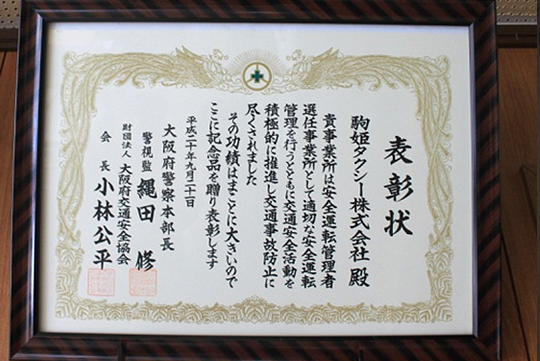 表彰状
駒姫タクシー株式会社 殿
貴事業所は安全運転管理者
選任事業所として適切な安全運転
管理を行うとともに交通安全活動を
積極的に推進し交通事故防止に
尽くされました
その功績はまことに大きいので
ここに記念品を贈り表彰します
平成二十年九月二十二日
大阪府警察本部長
警視監 縄田 修
財団法人 大阪府交通安全協会
会長 小林公平